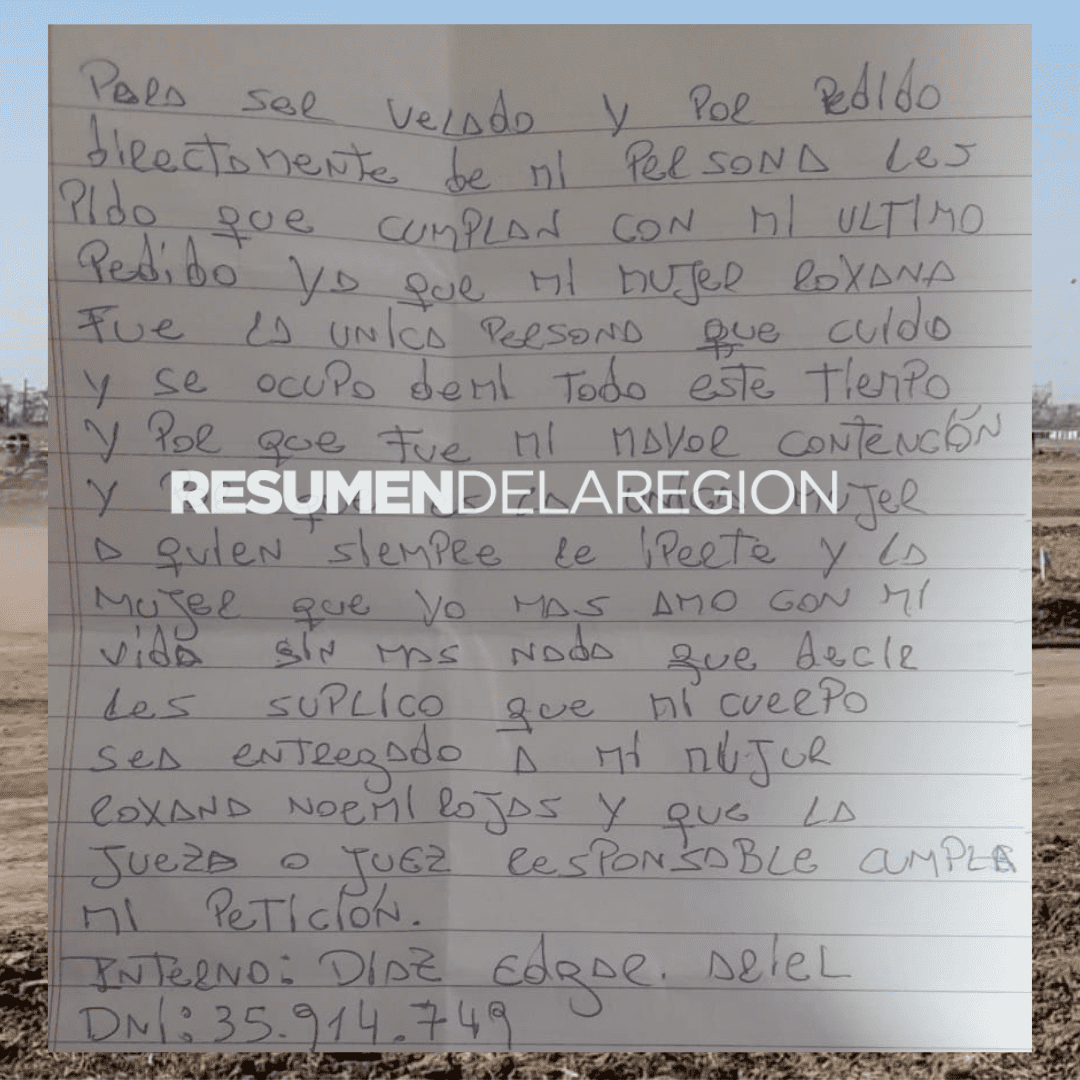 Para ser velado y por pedido
directamente de mi persona les
pido que cumplan con mi ultimo
pedido ya que mi mujer Roxana
fue la unica persona que cuido
y se ocupo de mi todo este tiempo
y por que fue mi mayor contención
y que mujer
RESUMENDELAREGION
a quien siempre le
y la
mujer que yo mas amo con mi
vida sin mas nada que decir
les suplico que mi cuerpo
sea entregado a mi mujur
Roxana Noemi Rojas y que la
jueza o juez responsable cumpla
mi petición.
Interno: Diaz Edgar. Ariel
DNI: 35.914.749